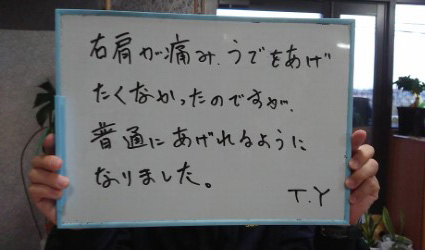 右肩が痛み、うでをあげ
たくなかったのですが、
普通にあげれるように
なりました。
T.Y